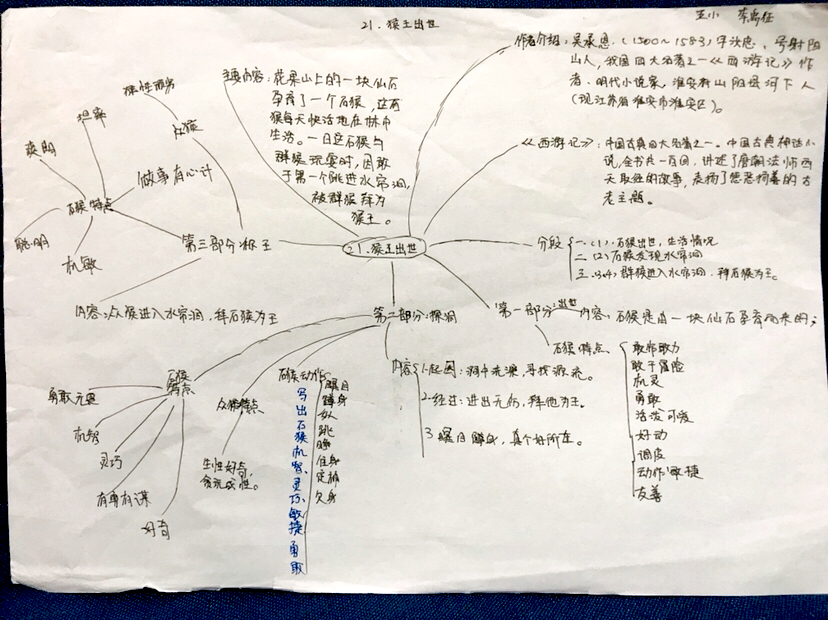 21.猴王出世
五小
作者介绍:吴承恩,(1500~1583)字汝忠,号射阳
山人,我国四大名著之一《西游记》作
者、明代小说家,淮安府山阳县河下人
(现江苏省淮安市淮安区)。
主要内容:花果山上的一块仙石
孕育了一个石猴,这石
猴每天快活地在林中
生活。一日这石猴与
群猴玩耍时,因敢
于第一个跳进水帘洞,
被群猴拜为
猴王。
《西游记》:中国古典四大名著之一。中国古典神话小
说,全书共一百回,讲述了唐朝法师西
天取经的故事,表扬了惩恶扬善的古
老主题。
21.猴王出世
分段
一.(1).石猴出世,生活情况
二.(2)石猴发现水帘洞
三.(3,4)群猴进入水帘洞,拜石猴为王。
第一部分:出世
内容:石猴是由一块仙石孕育而来的;
石猴特点
敢作敢为
敢于冒险
机灵
勇敢
活泼可爱
好动
调皮
动作敏捷
友善
第二部分:探洞
内容
1.起因:涧中洗澡,寻找源流。
2.经过:进出无伤,拜他为王。
3.瞑目蹲身,真个好所在。
石猴动作
瞑目
蹲身
跳
住身
定神
欠身
写出石猴机智、灵巧、敏捷、勇敢
众猴特点
生性好奇,
贪玩成性。
石猴
特点
勇敢无畏
机智
灵巧
有勇有谋
好奇
第三部分:称王
众猴
做事有心计
石猴特点
坦率
爽朗
聪明
机敏
内容:众猴进入水帘洞,拜石猴为王